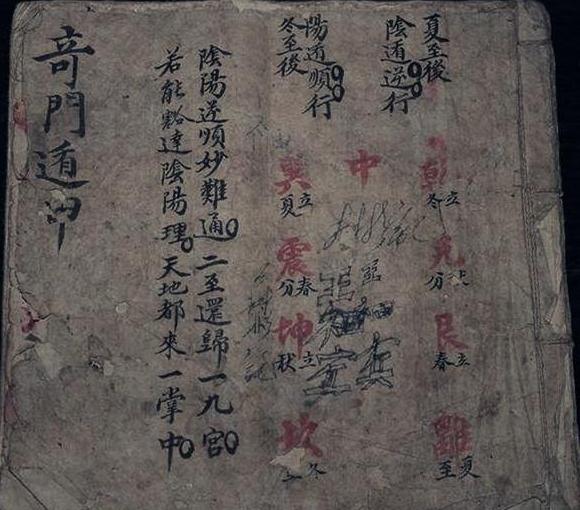 夏至後
陰遁逆行
陽遁順行
冬至後
乾
立冬
兌
秋分
艮
立春
離
夏至
中
巽
立夏
震
春分
坤
立秋
坎
冬
陰陽逆順妙難通。二至還歸一九宮。
若能豁達陰陽理。天地都來一掌中。
竒門遁甲